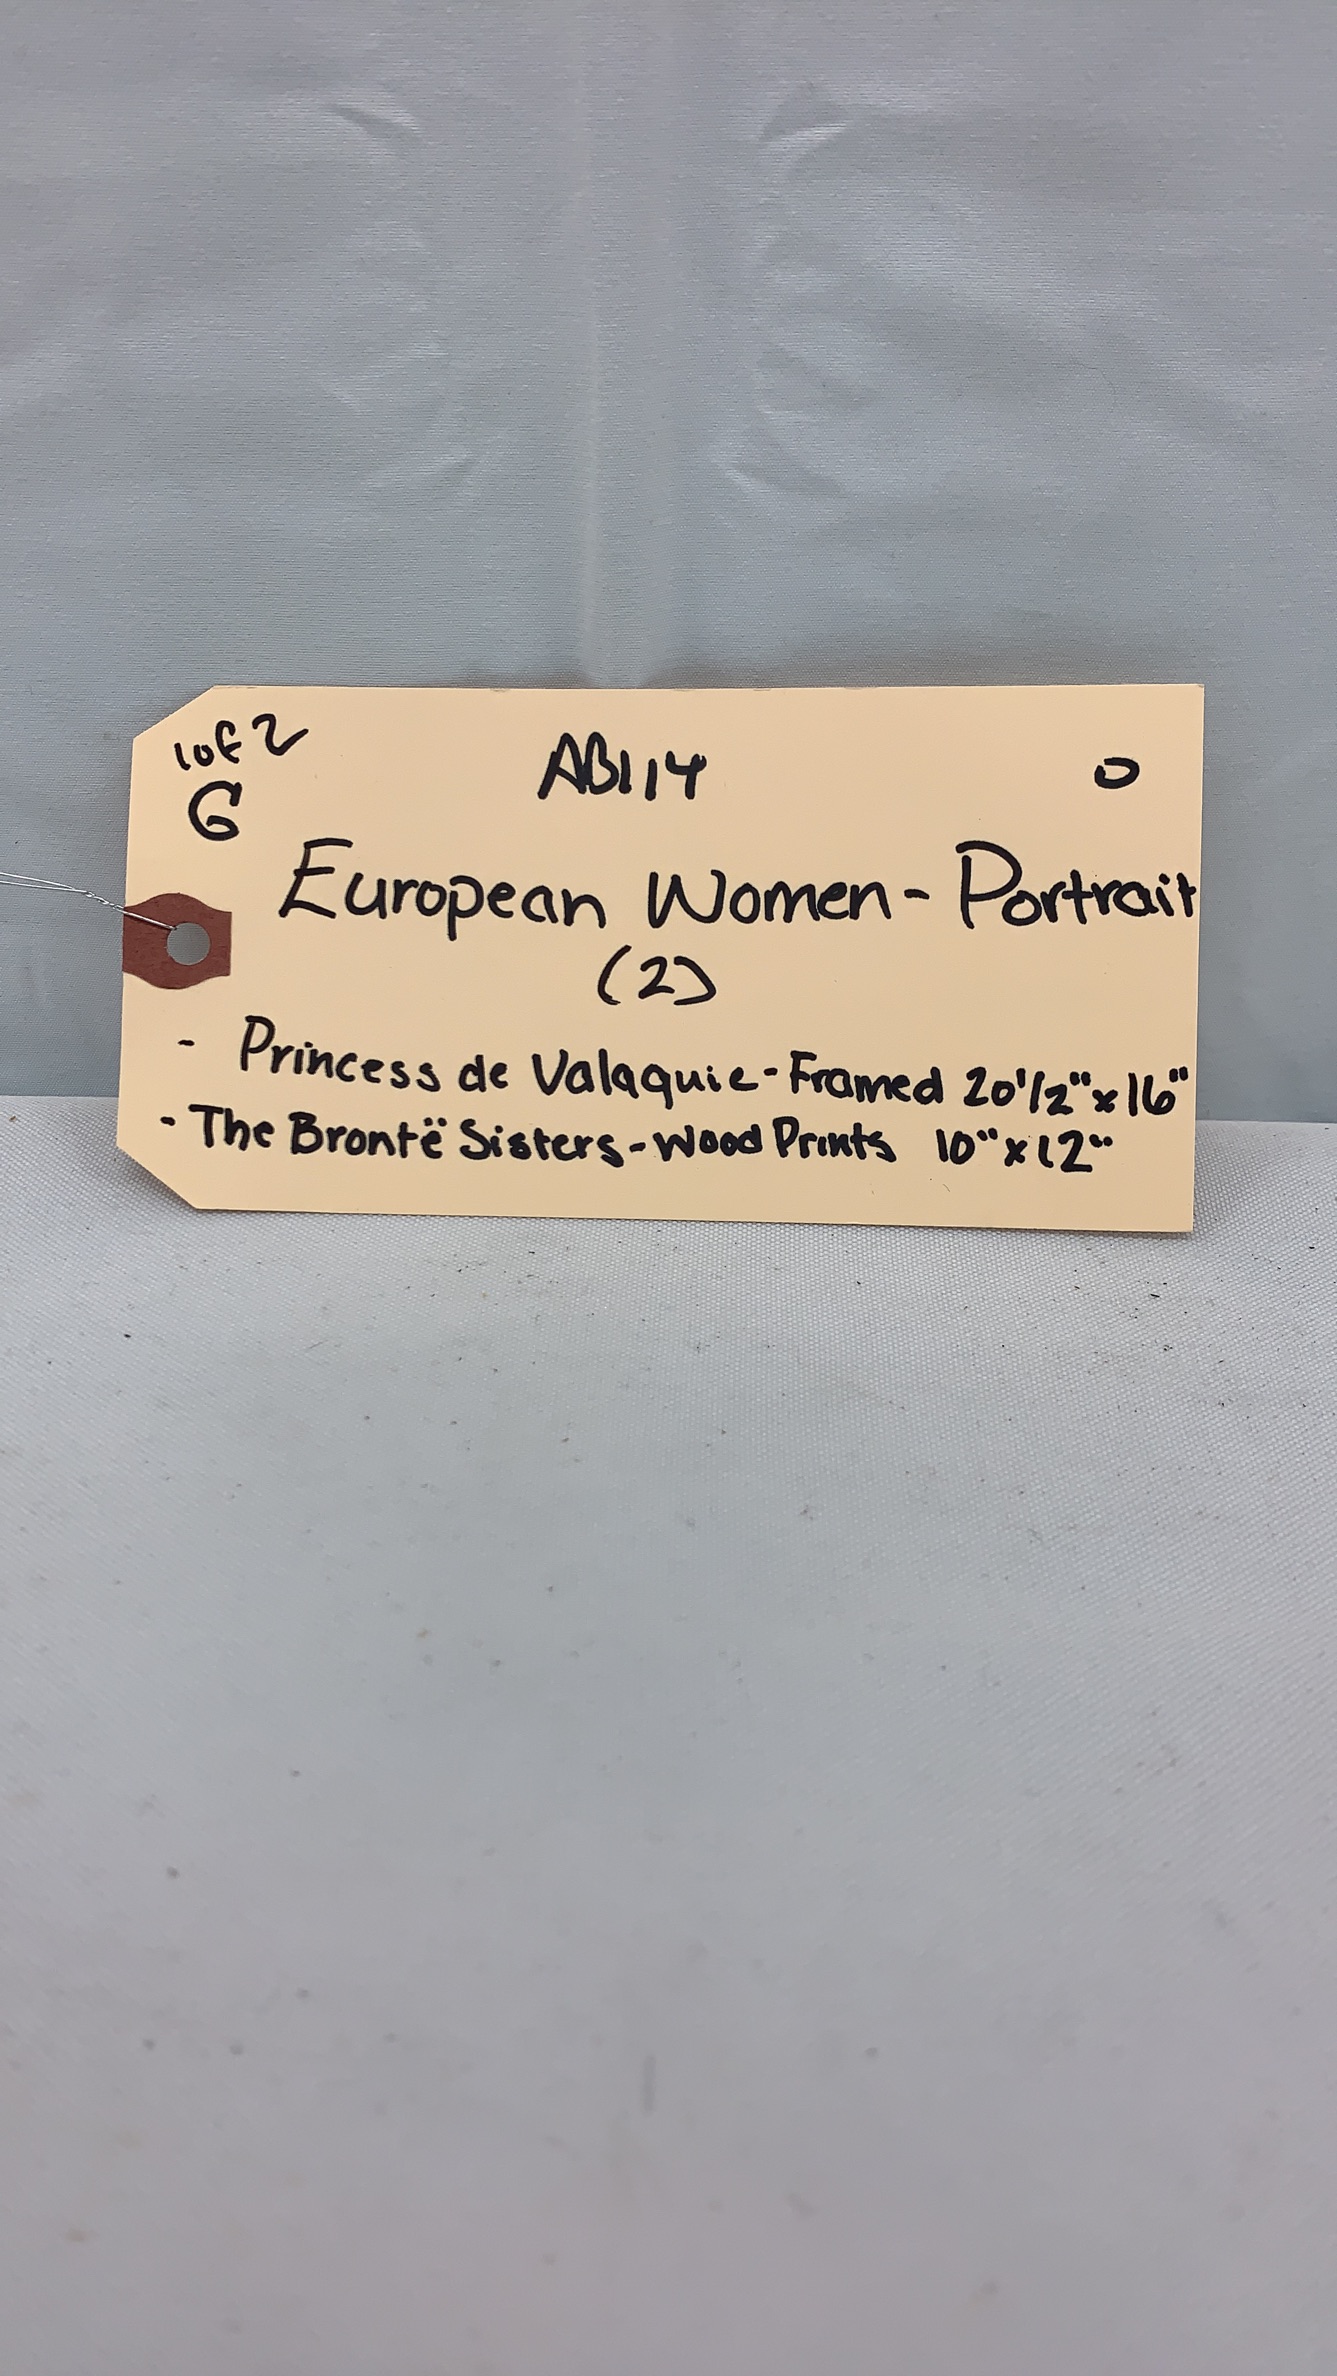 1 of 2
G
AB114
O
European Women - Portrait
(2)
- Princess de Valaquie - Framed 20 1/2" x 16"
- The Brontë Sisters - Wood Prints 10" x 12"